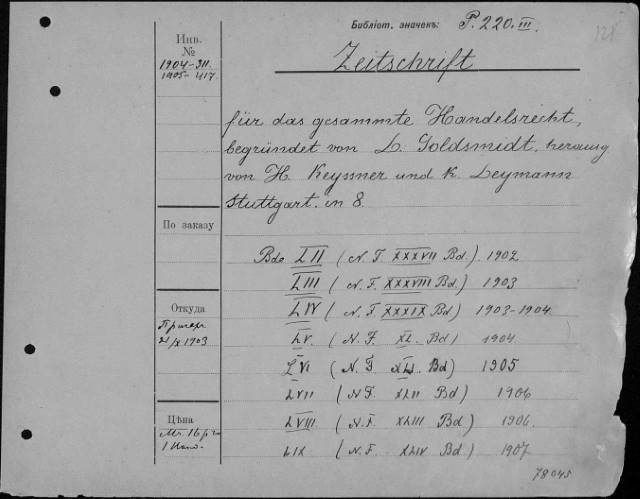 Библіот. значекъ: P. 220. III.
121
Инв. №
1904-311.
1905-417.
Zeitschrift
für das gesammte Handelsrecht,
begründet von L. Goldsmidt, herausg
von H. Keyssner und K. Leymann
Stuttgart. in 8.
По заказу
Bde LII (N. F. XXXVII Bd). 1902
LIII (N. F. XXXVIII Bd.) 1903
LIV (N. F. XXXIX Bd) 1903-1904
LV. (N. F. XL. Bd) 1904.
LVI (N. F. XLI. Bd) 1905
LVII (N. F. XLII Bd.) 1906
LVIII (N. F. XLIII Bd.) 1906.
LIX (N. F. XLIV Bd.) 1907
Откуда
21/X 1903
Цѣна
78045